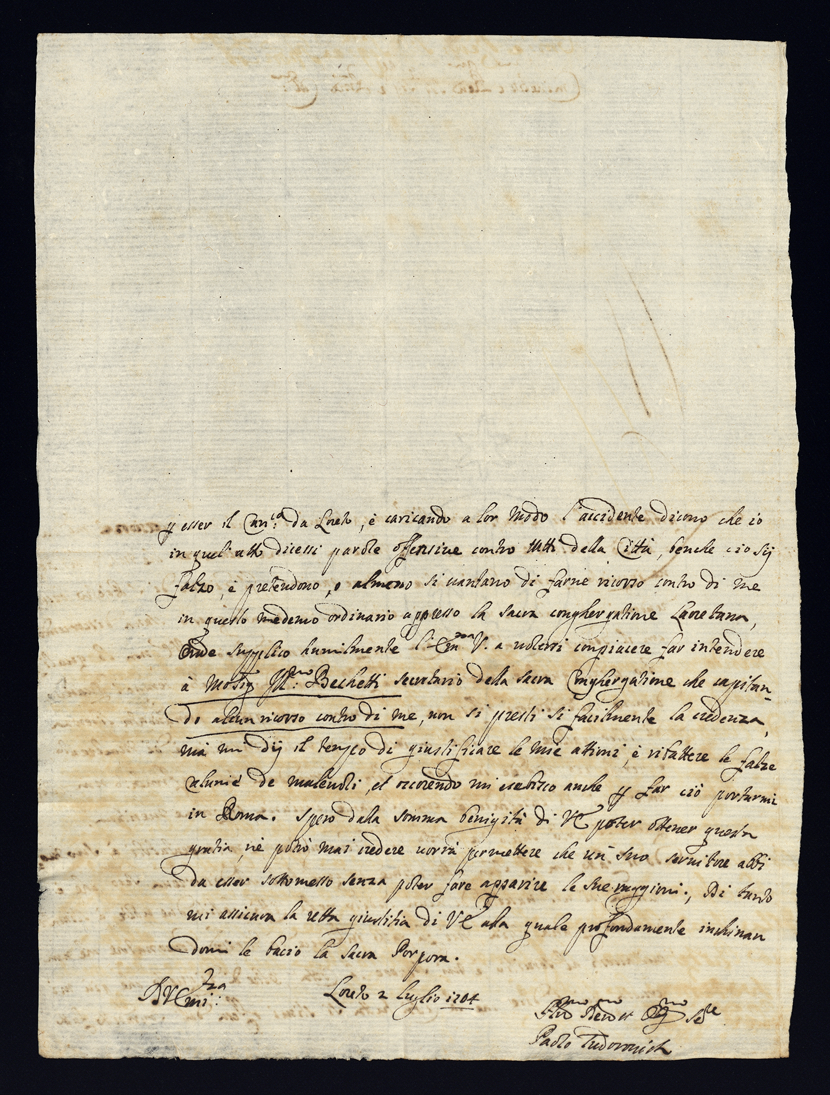 esser il da Loreto, è caricando a lor modo l'accidente dicono che io
in quel'atto dicessi parole offensive contro tutti della Città, benche cio sij
falzo, è pretendono, o almeno si uantano di farne ricorso contro di me
in questo medemo ordinario appresso la sacra conghergatione Lauretana,
supplico humilmente l' V. a uolersi compiacere far intendere
à Monsig Bechetti secretario della sacra Conghergatione che capitan-
do alcun ricorso contro di me, non si presti si facilmente la credenza,
mà mi dij il tempo di giustificare le mie attioni, è ributtere le falze
calunie de maleuoli, et ocorendo mi esebisco anche far ciò portarmi
in Roma. Spero dala somma benigità di poter ottener questa
gratia, nè potrò mai credere uorrà permettere che un suo seruitore abbi
da esser sottomesso senza poter fare apparire le sue raggioni. Di tanto
mi assicura la retta giustitia di ala quale profondamente inchinan
domi le bacio la sacra Porpora.
Loreto 2 Luglio 1704
Paolo Tudorovich